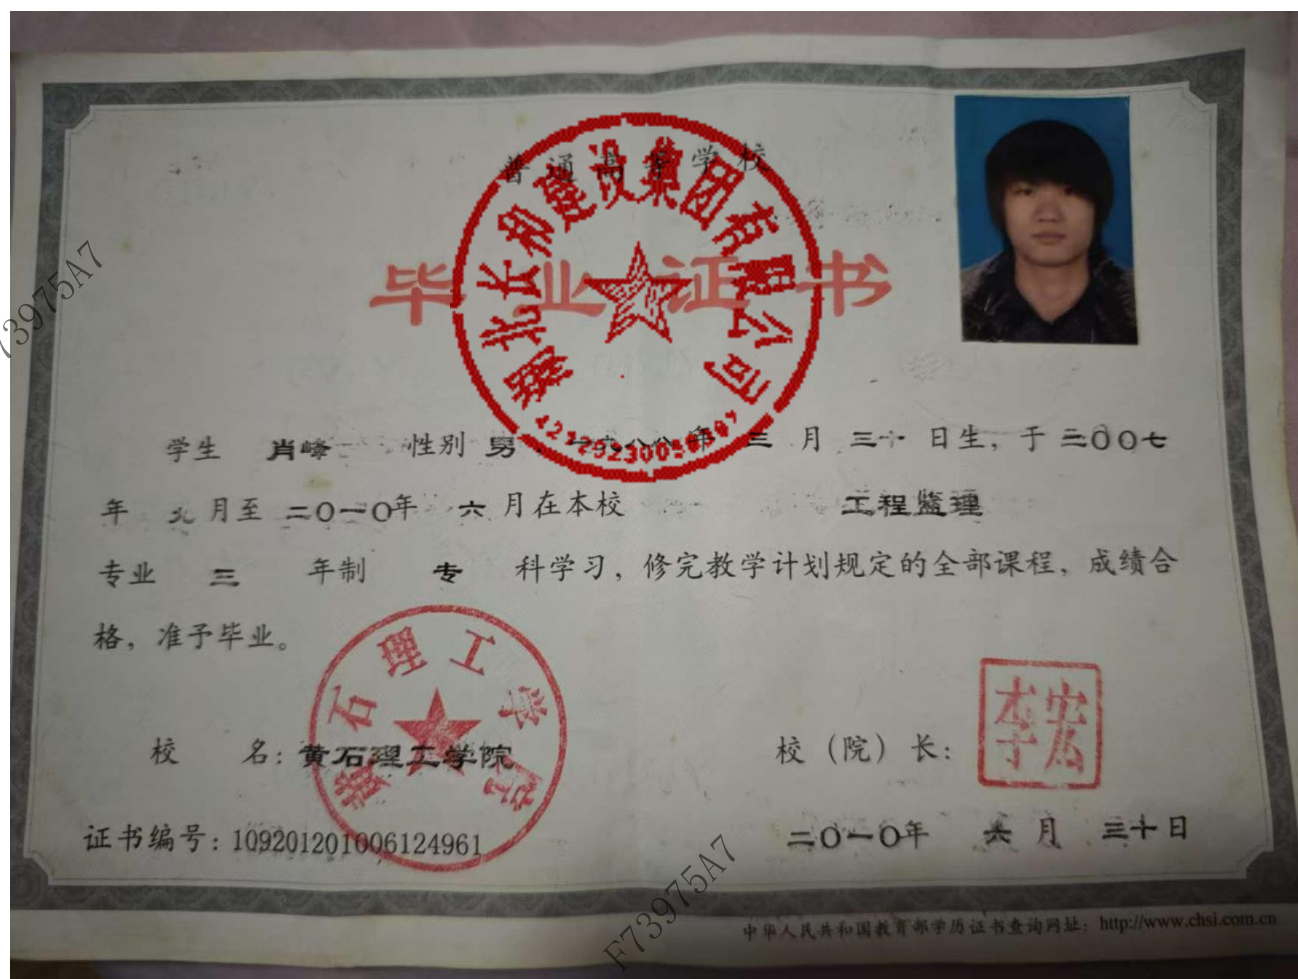 普通高等学校
毕业证书
湖北长和建设集团有限公司
学生 肖峰 性别 男, 一九八八年 三 月 三十 日生, 于 二〇〇七
年 九 月至 二〇一〇年 六 月在本校 工程监理
专业 三 年制 专 科学习, 修完教学计划规定的全部课程, 成绩合
格, 准予毕业。
黄石理工学院
校 名: 黄石理工学院
校（院）长:
李宏
证书编号: 109201201006124961
二〇一〇年 六 月 三十日
中华人民共和国教育部学历证书查询网址: http://www.chsi.com.cn
F73975A7